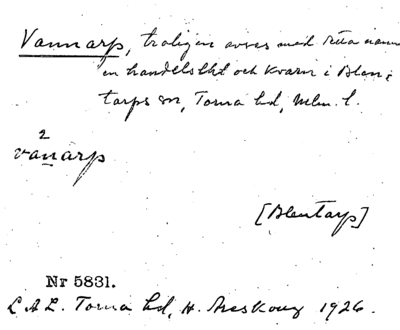 Vannarp, troligen avses med detta namn
en handelslht och kvarn i Blen-
tarps sn, Torna hd, Mlm. l.
2
vanarp
[Blentarp]
Nr 5831.
L.A.L. Torna hd, H. Areskoug 1926.